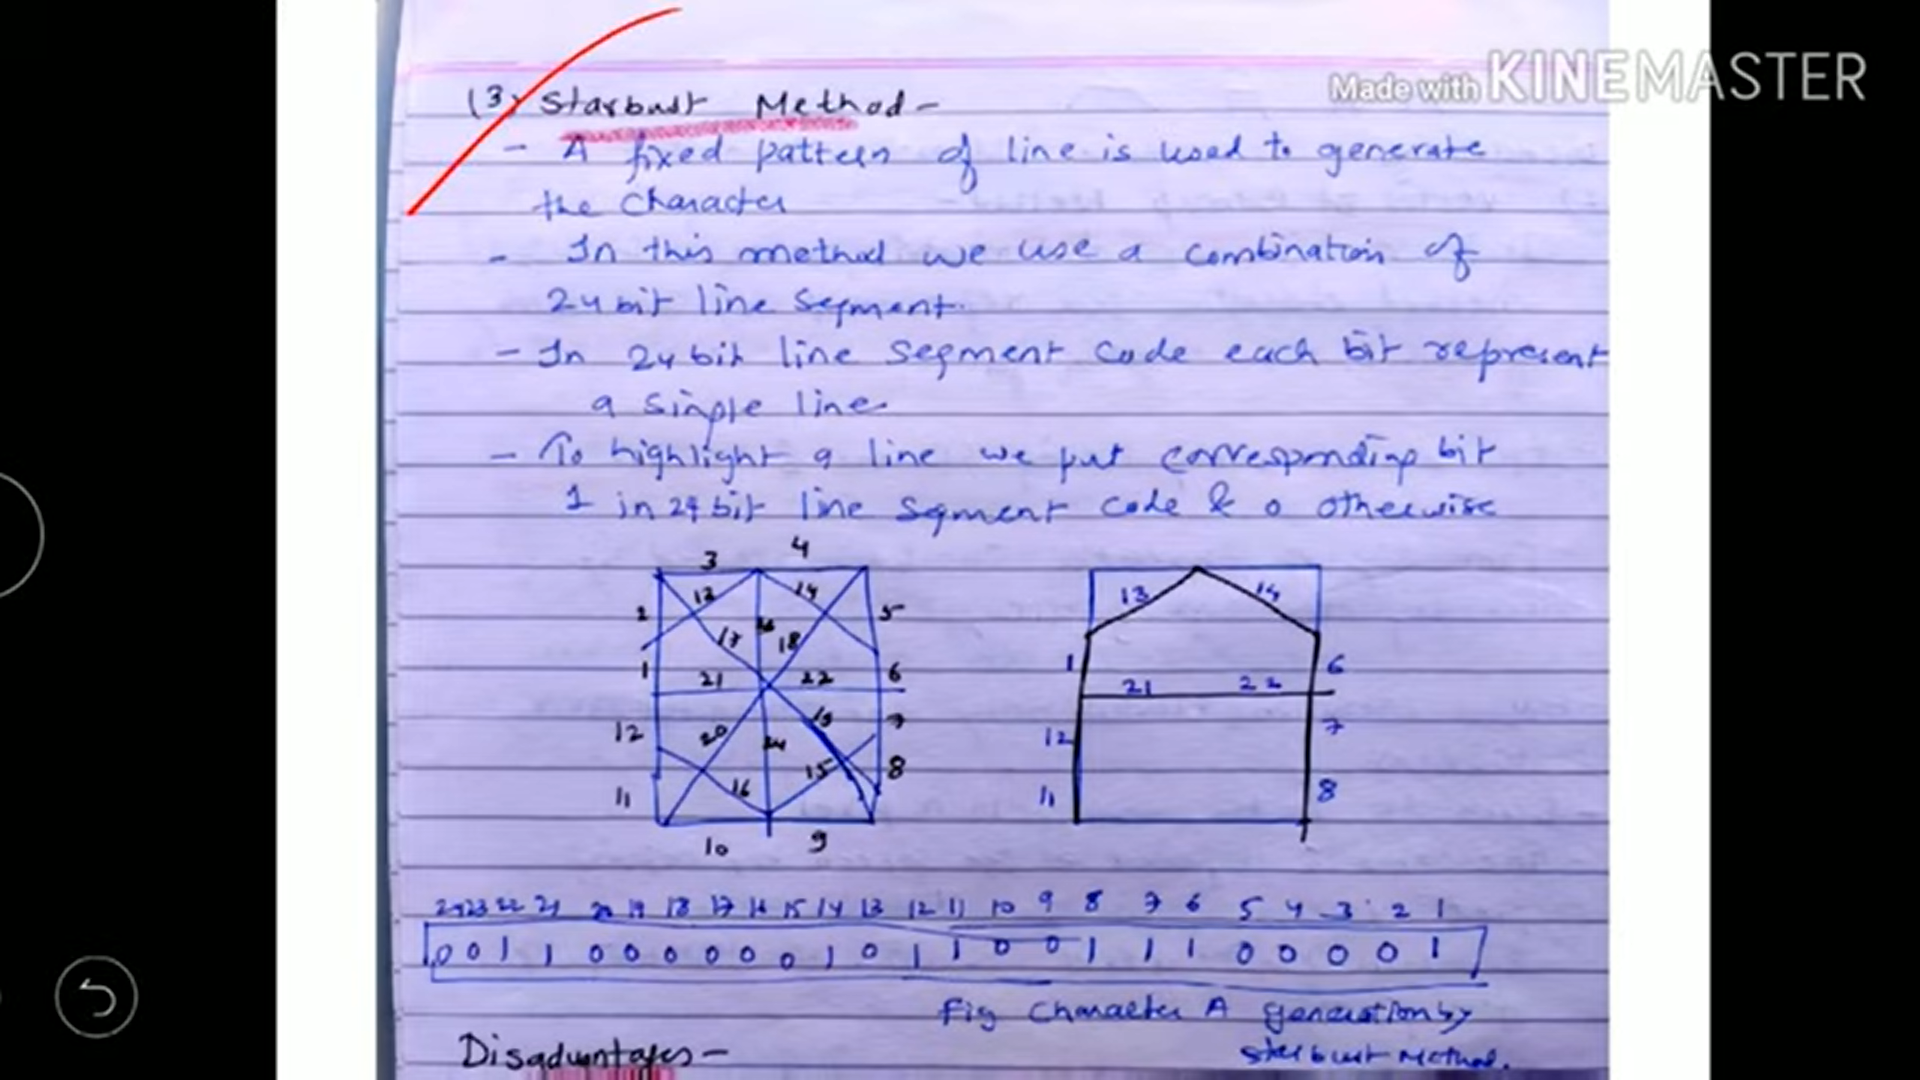 Made with KINEMASTER
(3) Starbust Method -
- A fixed pattern of line is used to generate
the Character
- In this method we use a combination of
24 bit line segment.
- In 24 bit line segment code each bit represent
a single line
- To highlight a line we put corresponding bit
1 in 24 bit line segment code & 0 otherwise
3 4
2 13 14 5
17 18
1 21 22 6
12 20 24 19 7
11 16 15 8
10 9
13 14
1 6
21 22
12 7
11 8
24 23 22 21 20 19 18 17 16 15 14 13 12 11 10 9 8 7 6 5 4 3 2 1
0 0 1 1 0 0 0 0 0 0 1 0 1 1 0 0 1 1 1 0 0 0 0 1
Fig Character A generation by
Starbust Method.
Disadvantages -